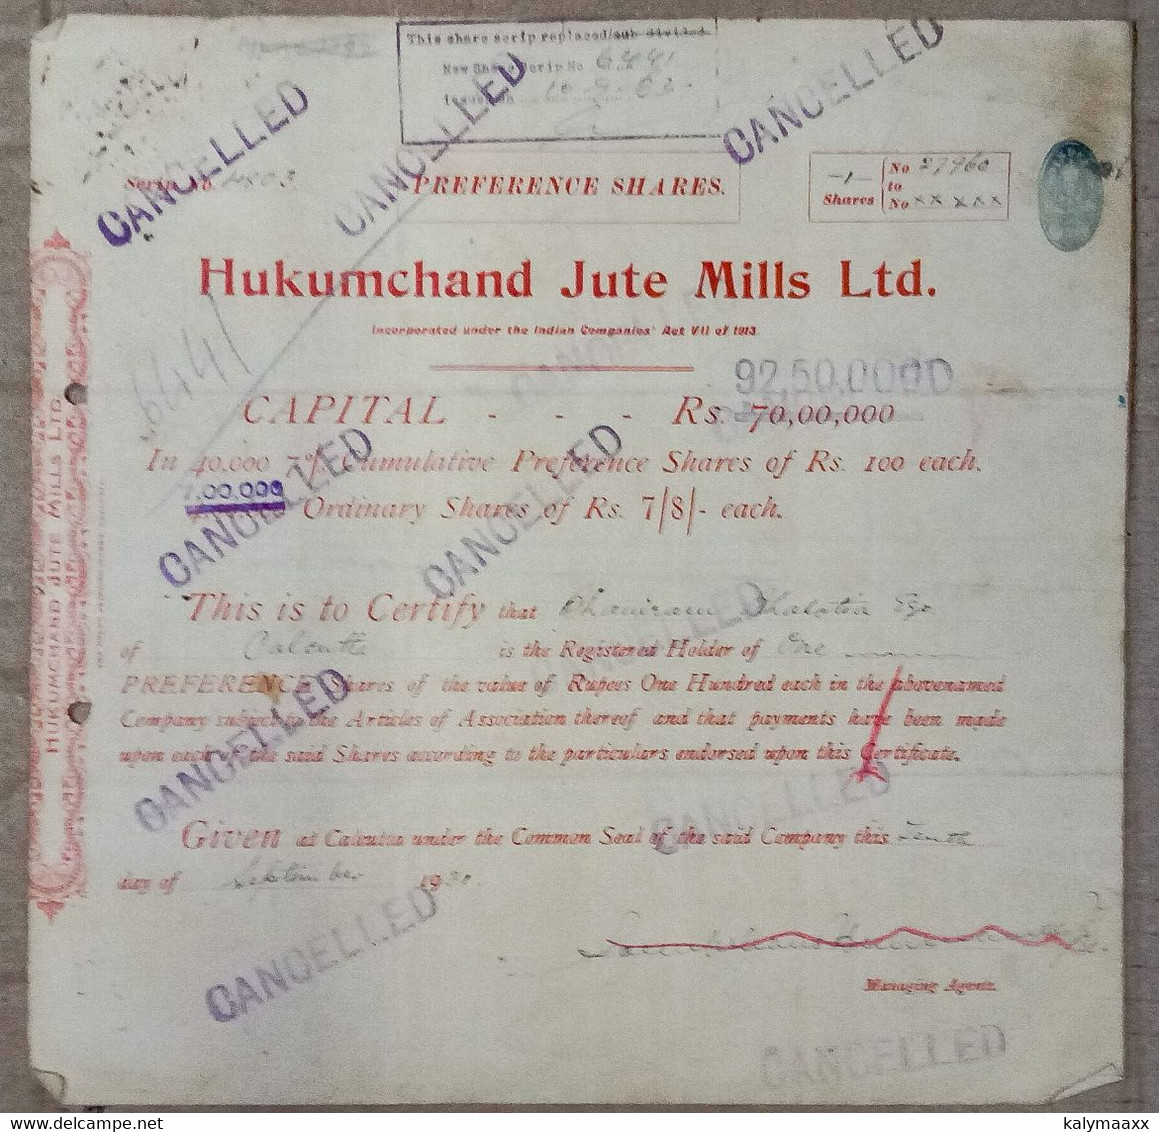 This share scrip replaced/sub-divided
New Share Scrip No 6441
Issued on 10-9-63.
CANCELLED
CANCELLED
CANCELLED
PREFERENCE SHARES.
-1- Shares
No 27960
to
No xx xxx
Hukumchand Jute Mills Ltd.
Incorporated under the Indian Companies' Act VII of 1913
6441
92,50,000
CAPITAL - - - Rs. 70,00,000
In 40,000 7% Cumulative Preference Shares of Rs. 100 each.
1,00,000 Ordinary Shares of Rs. 7/8/- each.
CANCELLED
CANCELLED
This is to Certify that Esqr
of Calcutta is the Registered Holder of One
PREFERENCE Shares of the value of Rupees One Hundred each in the abovenamed
Company subject to the Articles of Association thereof and that payments have been made
upon each of the said Shares according to the particulars endorsed upon this Certificate.
CANCELLED
CANCELLED
Given at Calcutta under the Common Seal of the said Company this Tenth
day of September 1920.
CANCELLED
Managing Agents.
CANCELLED
HUKUMCHAND JUTE MILLS LTD.
HUKUMCHAND JUTE MILLS LTD.
www.delcampe.net
kalymaaxx